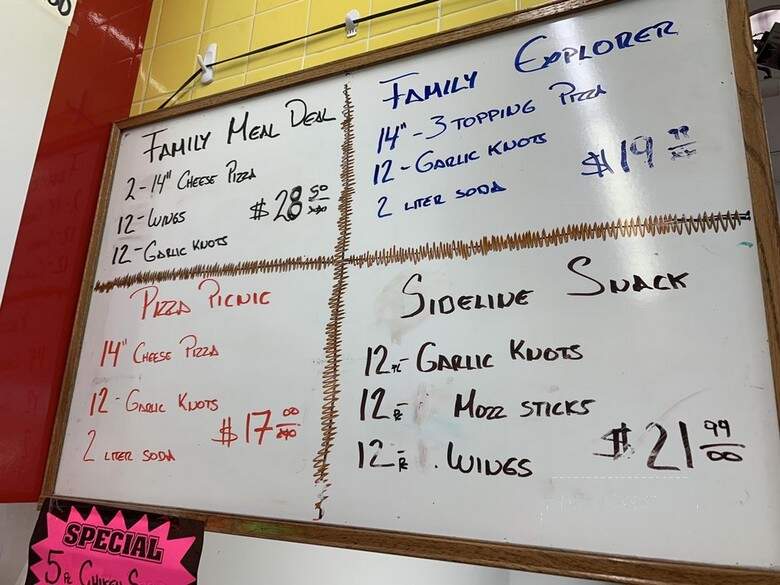 FAMILY MEAL DEAL
2-14" CHEESE PIZZA
12-WINGS
12-GARLIC KNOTS
$28 50
FAMILY EXPLORER
14"-3 TOPPING PIZZA
12-GARLIC KNOTS
2 LITER SODA
$19 99
PIZZA PICNIC
14" CHEESE PIZZA
12-GARLIC KNOTS
2 LITER SODA
$17 00
SIDELINE SNACK
12 PC- GARLIC KNOTS
12 - MOZZ STICKS
12 - WINGS
$21 99
SPECIAL
5 PC CHICKEN